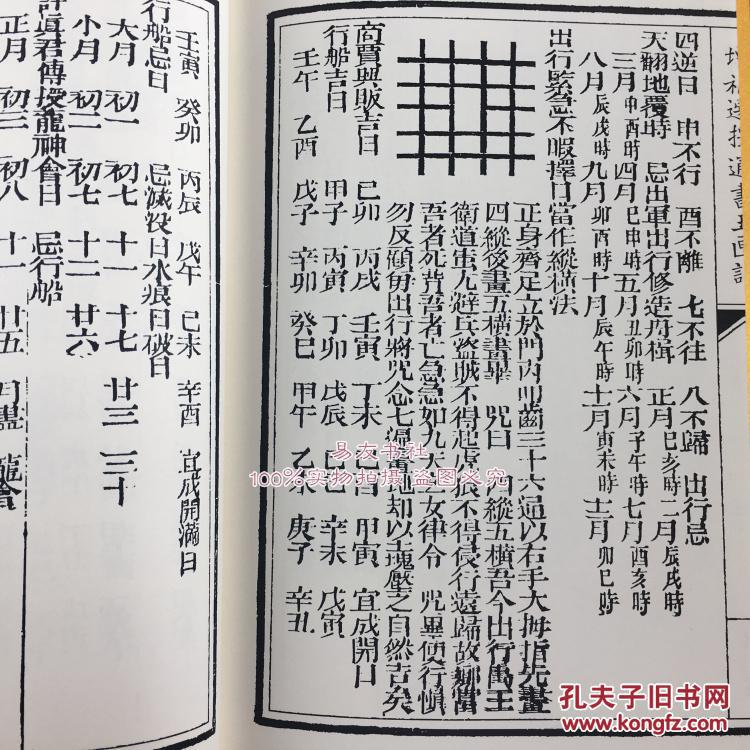 四逆日　申不行　酉不離　七不往　八不歸　出行忌
天翻地覆時　忌出軍出行修造舟楫　正月巳亥時二月辰戌時
三月申酉時四月巳申時五月丑卯時六月子午時七月酉亥時
八月辰戌時九月卯酉時十月辰午時十一月寅未時十二月卯巳時
出行緊急不暇擇日當作縱橫法
正身齊足立於門內叩齒三十六通以右手大拇指先畫
四縱後畫五橫畫畢　咒曰　四縱五橫吾今出行禹王
衛道蚩尤避兵盜賊不得起虎狼不得侵行遠歸故鄉當
吾者死背吾者亡急急如九天玄女律令　咒畢便行慎
勿反顧每出行將咒念七遍畫地却以土塊壓之自然吉矣
商賈興販吉日　己卯　丙戌　壬寅　丁未　己酉　甲寅　宜成開日
行船吉日　甲子　丙寅　丁卯　戊辰　辛未　戊寅
壬午　乙酉　戊子　辛卯　癸巳　甲午　乙未　庚子　辛丑
壬寅　癸卯　丙辰　戊午　己未　辛酉　宜成開滿日
行船忌日　忌滅沒日水痕日破日
大月　初一　初七　十一　十七　廿三　三十
小月　初二　初七　十二　廿六
許真君傳授龍神會日　忌行船
正月　初三　初八　十一　廿五　月盡　龍會
易友书社
100%实物拍摄 盗图必究
孔夫子旧书网
www.kongfz.com